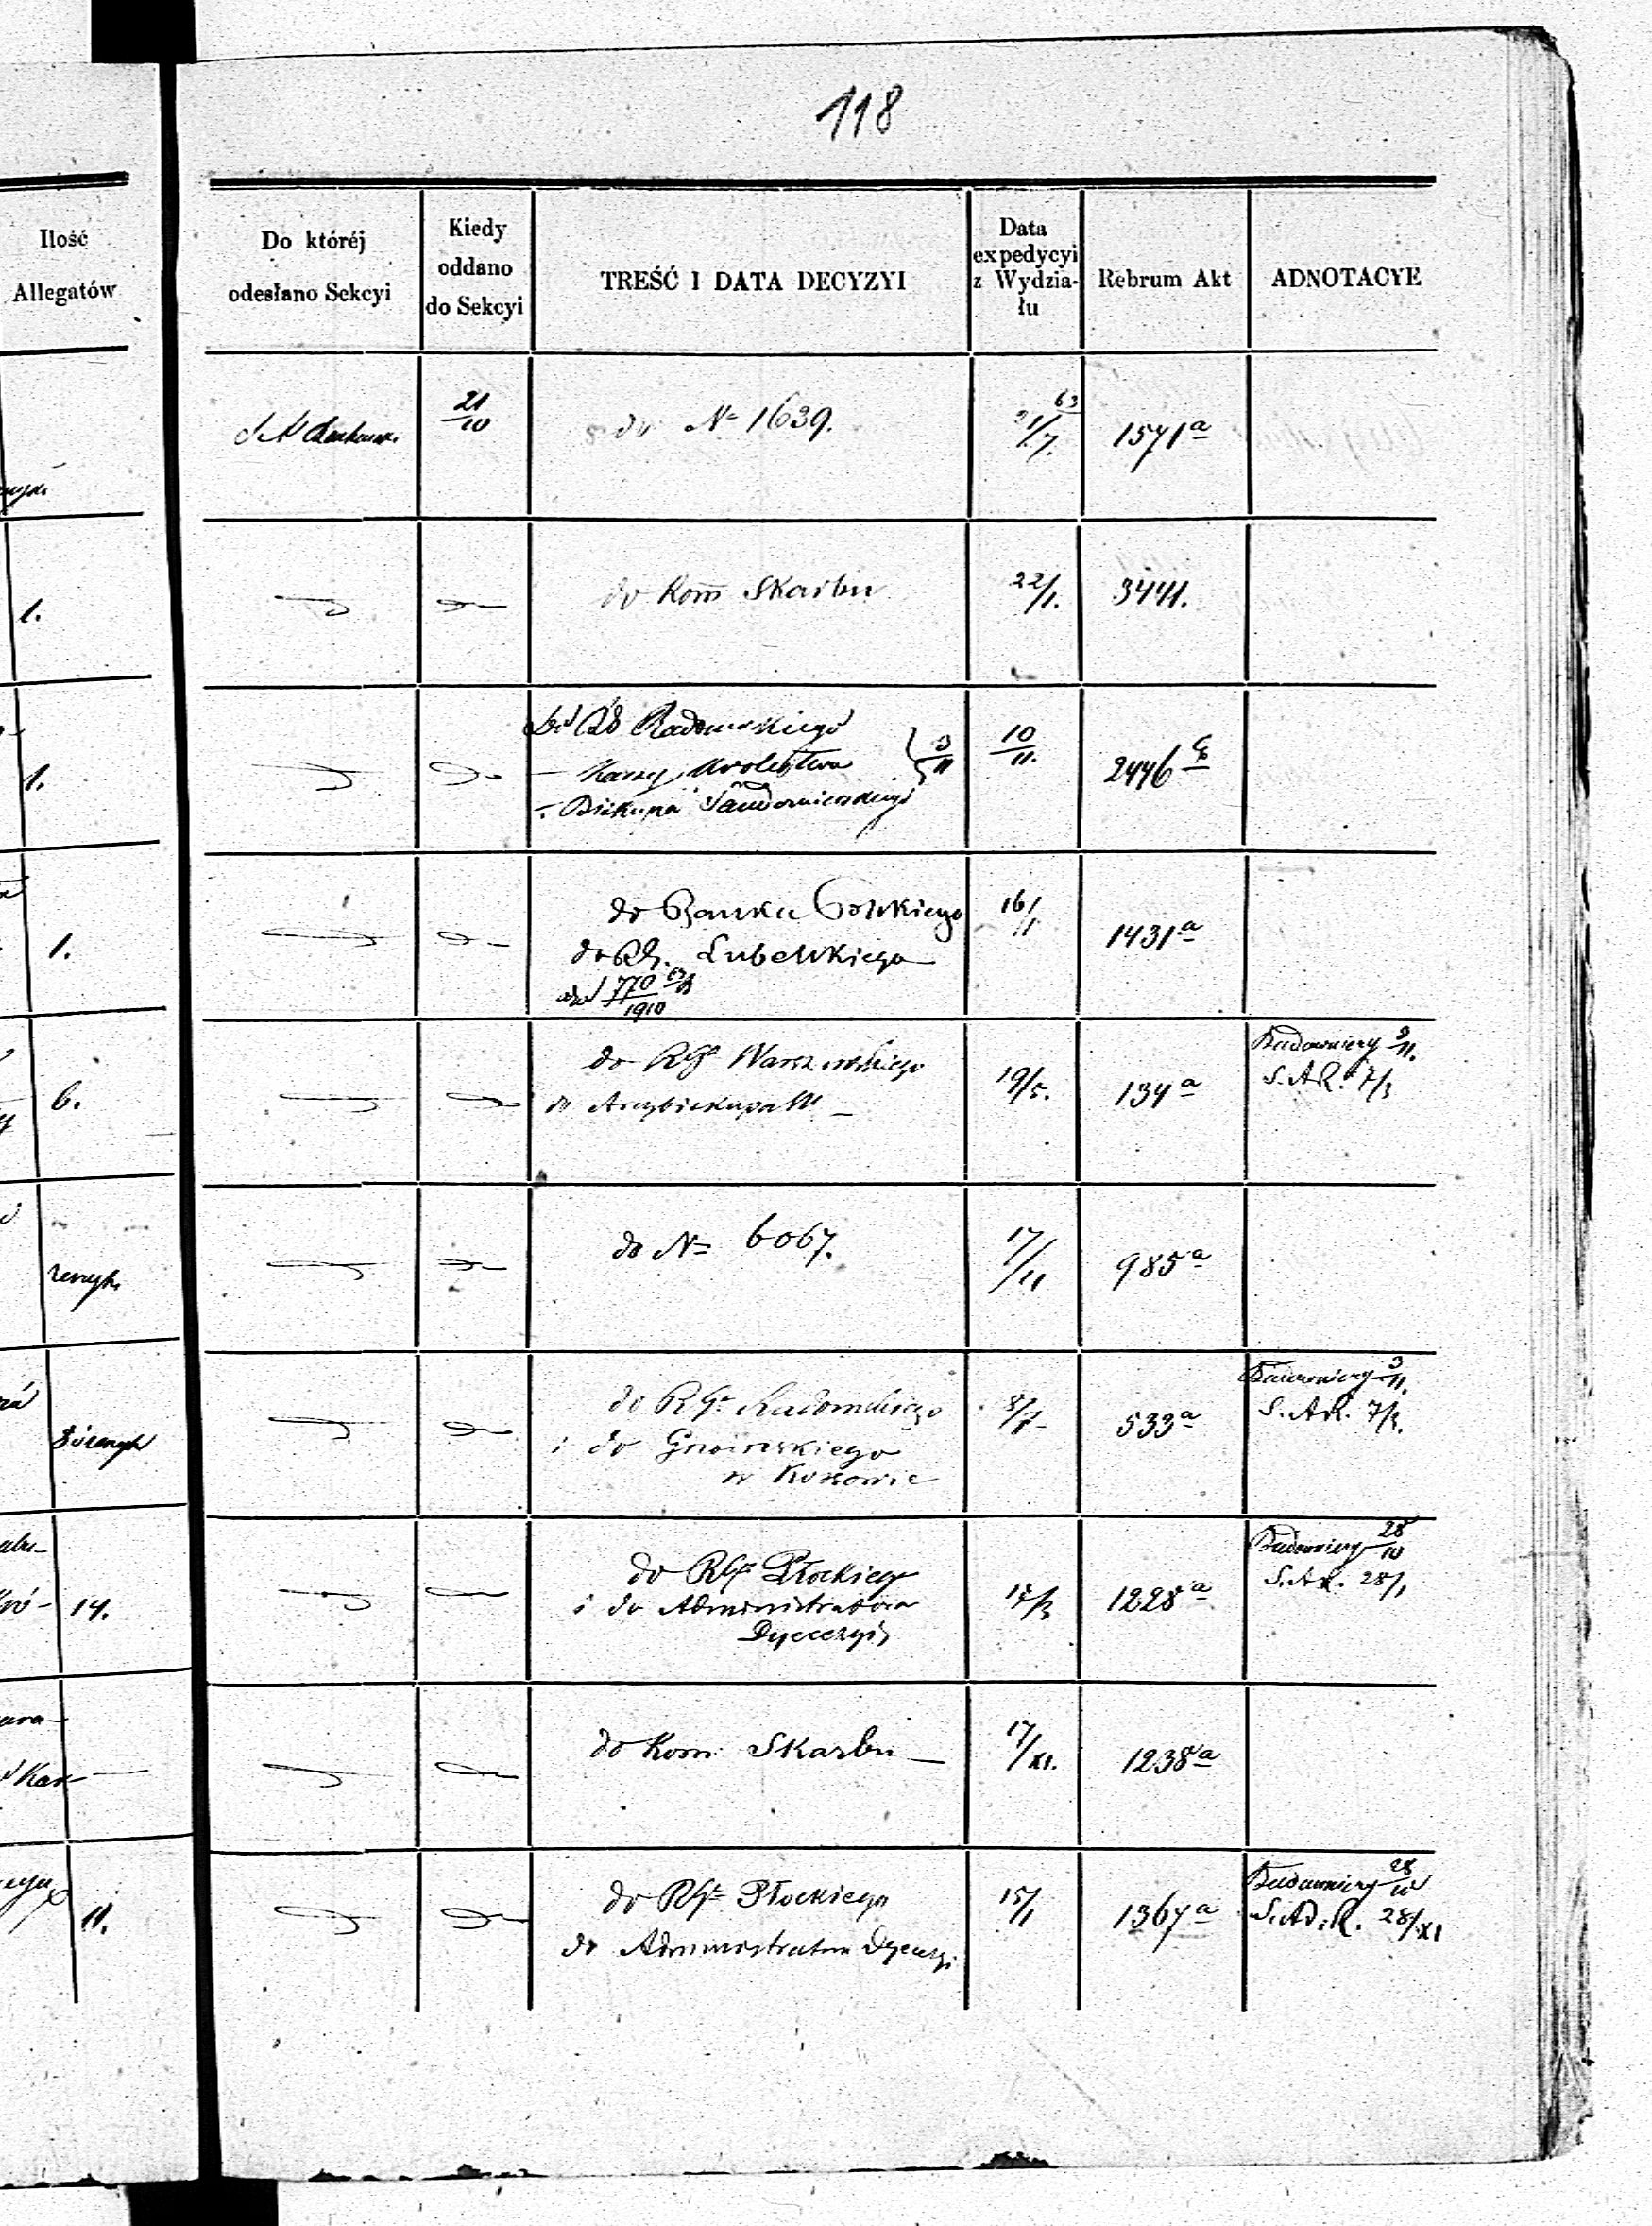 118
Ilość
Allegatów
Do któréj
odesłano Sekcyi
Kiedy
oddano
do Sekcyi
TREŚĆ I DATA DECYZYI
Data
expedycyi
z Wydzia-
łu
Rebrum Akt
ADNOTACYE
21/10
do № 1639.
63
21/7.
1571 a
1.
do Kom̄ Skarbu
22/1.
3441.
1.
Radomskiego
Kassy Królestwa
3/11
- Biskupa Sandomierskiego
10/11.
2446
1.
do Banku Polskiego
do RG. Lubelskiego
770/1910
16/1
1431 a
6.
do RGo Warszawskiego
do Arcybiskupa W —
19/5.
134 a
Budowniczy 9/11.
S. AR. 7/3
zeszyt.
do № 6067.
17/11
985 a
do RGo Radomskiego
i do Gnoińskiego
w
8/7
533 a
Budowniczy 3/11.
S. AR. 7/3.
14.
do RGo Płockiego
i do Administratora
Dyecezyi
1228 a
Budowniczy 28/10
S. AR. 28/1
Kas-
do Kom Skarbu —
17/XI.
1238 a
11.
do RGo Płockiego
do Administratora Dyecezyi
15/1
1367 a
Budowniczy 28/10
S. AD. R. 28/XI